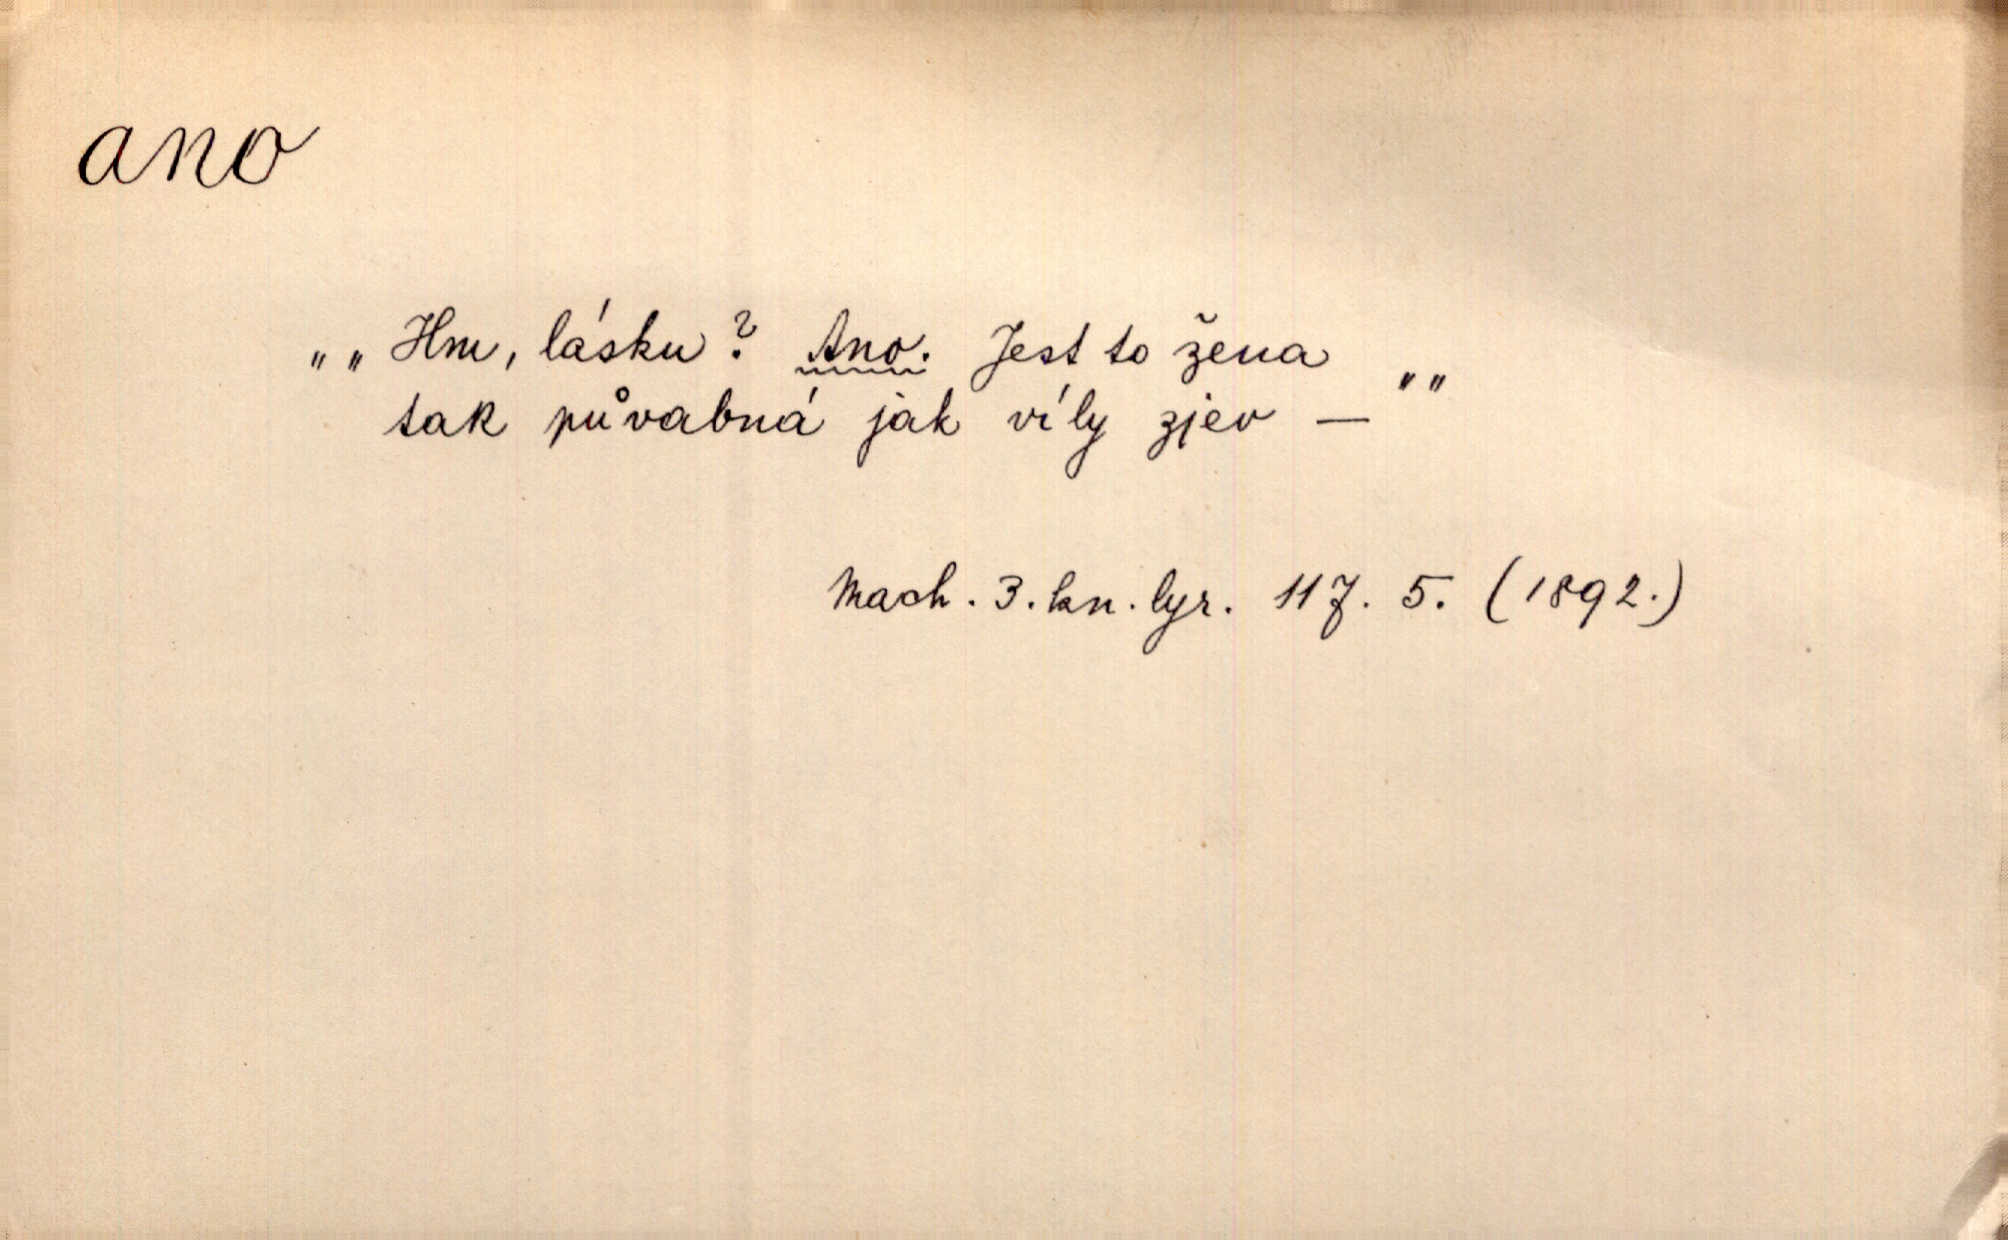 ano
„„Hm, lásku? Ano. Jest to žena
tak půvabná jak víly zjev —““
Mach. 3. kn. lyr. 117. 5. (1892.)